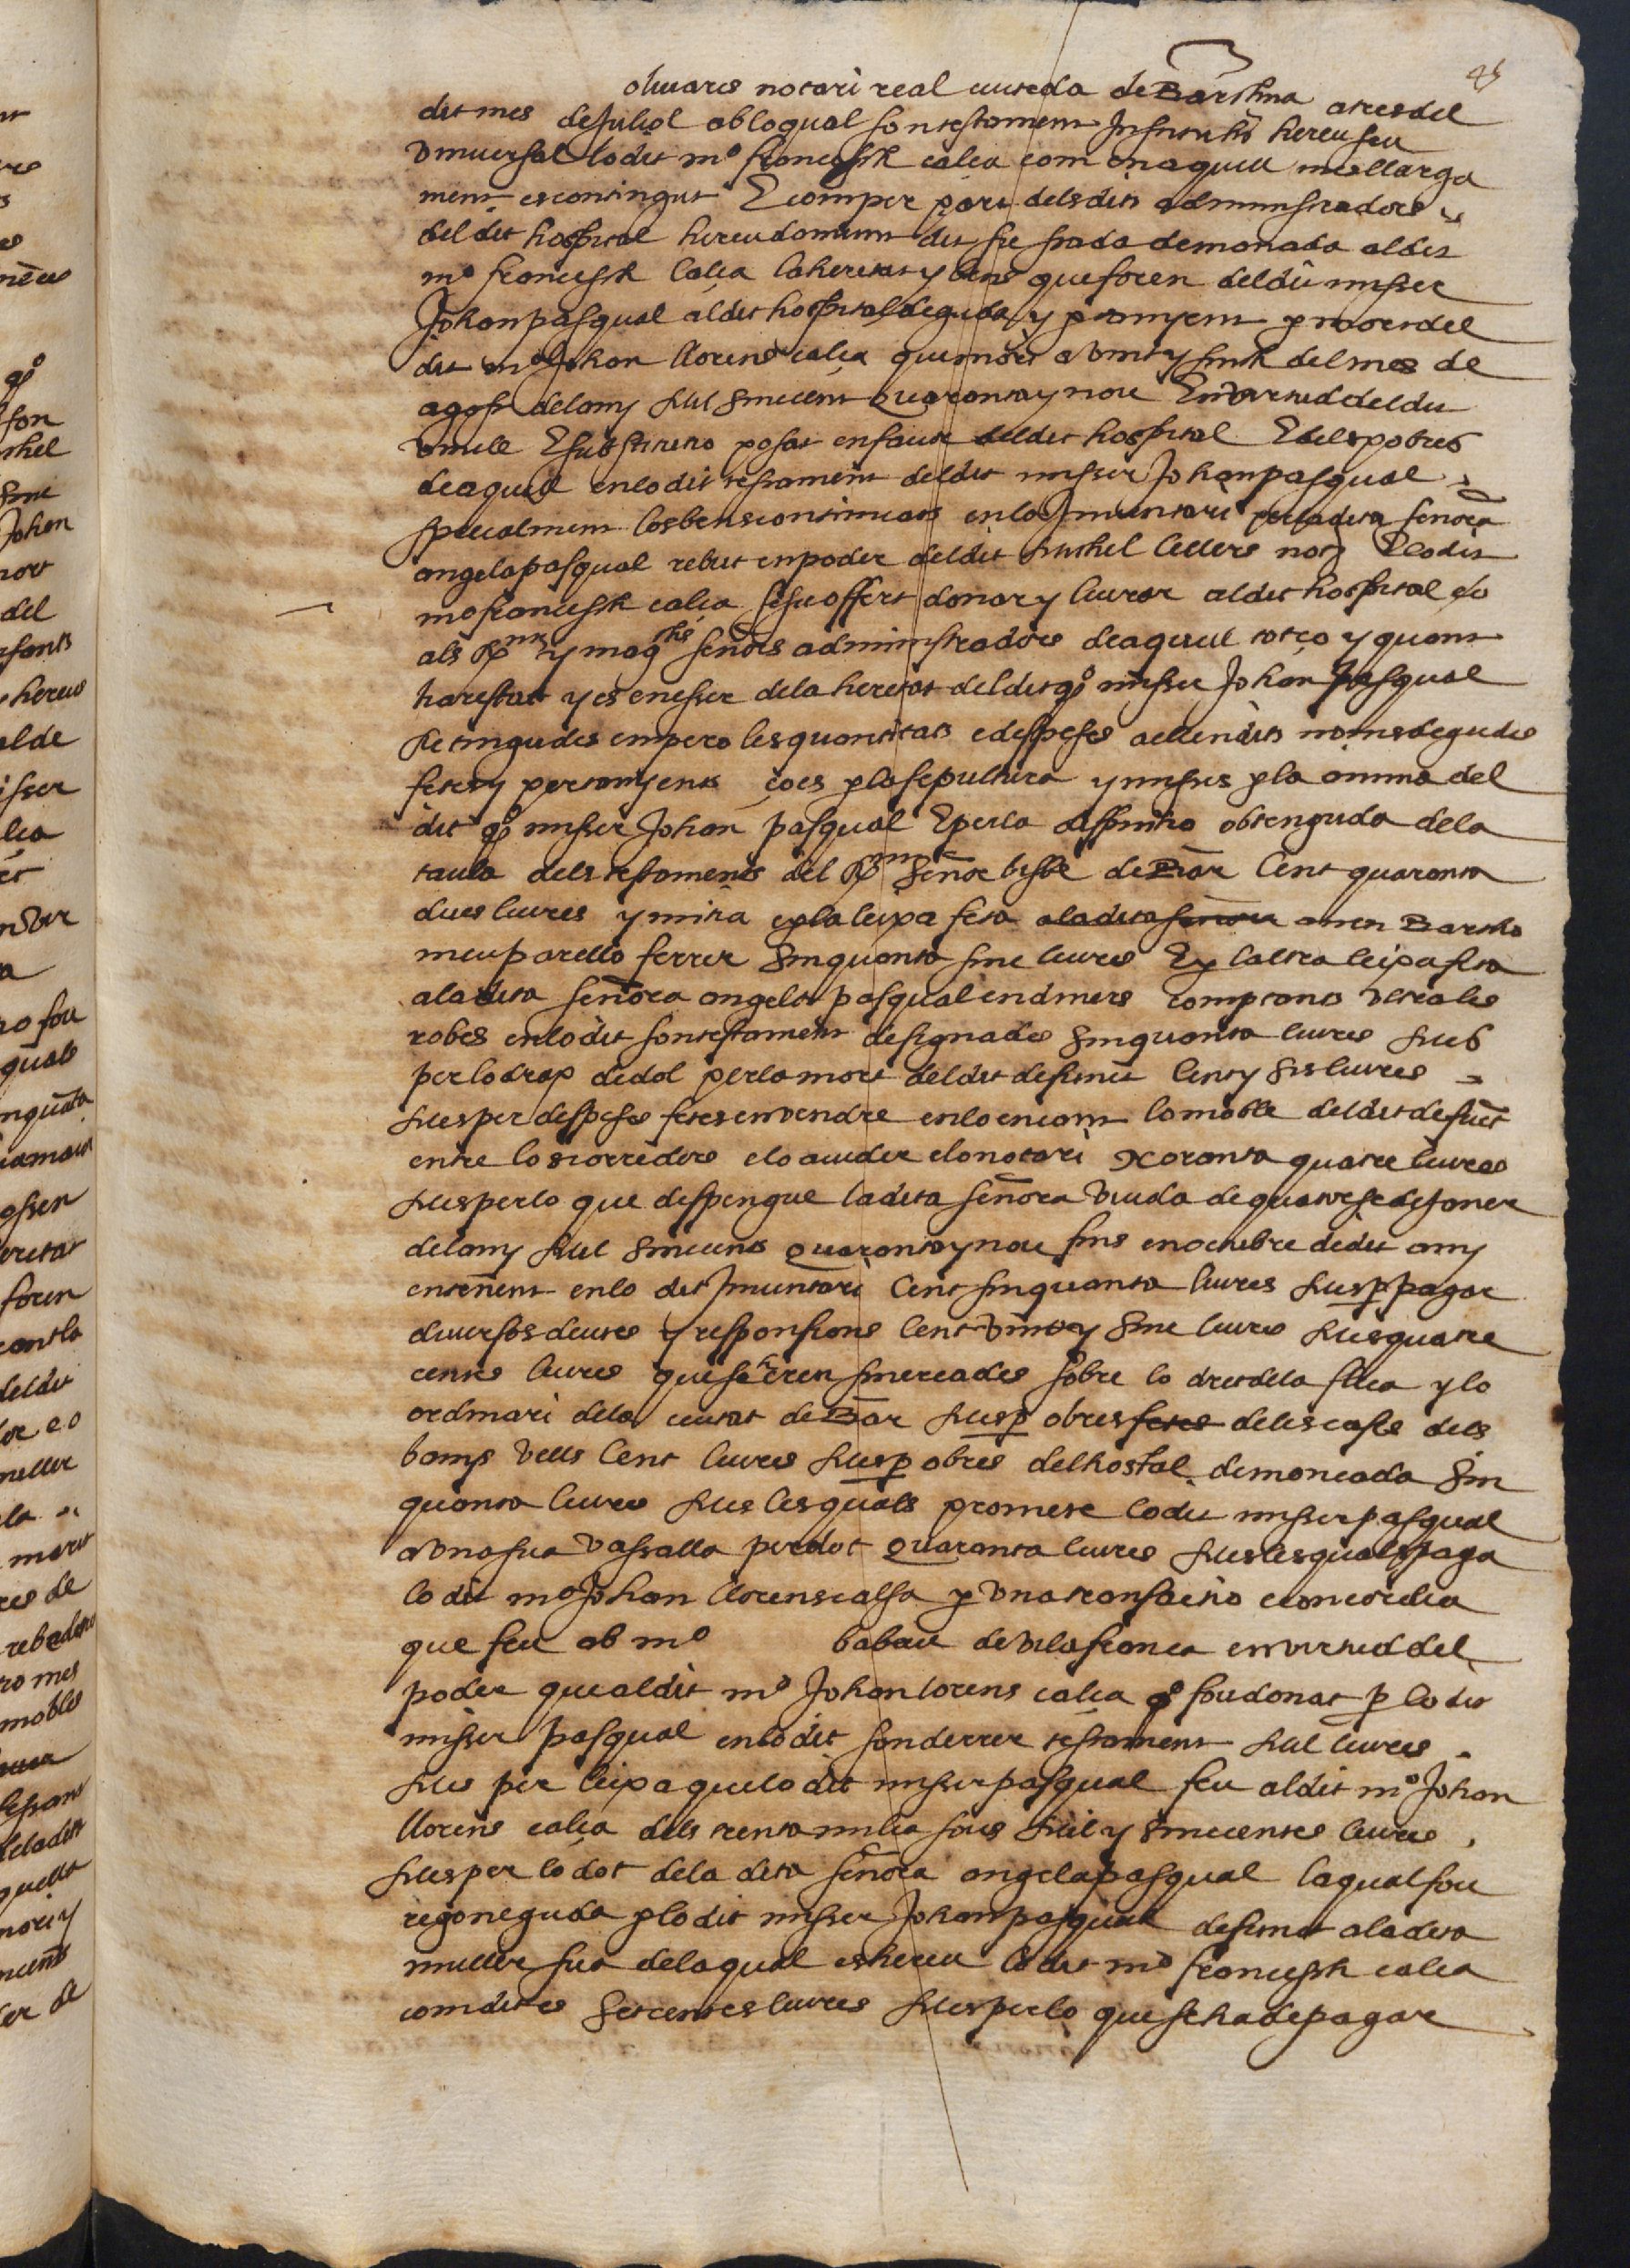 45
olivares notari real ciuteda de Barchna a tres del
dit mes de Juliol ab lo qual son testament Instituhi hereu seu
universal lo dit mº francesch calça com en aquell mes llarga
ment es contingut E com per part dels dits administradors
del dit hospital hereu domum dit sie stada demanada al dit
mº francesch Calça la heretat y bens que foren del dit misser
Johan pasqual al dit hospital deguda y ptanyent p mort del
dit mº Johan llorens calça qui mori a vint y sinch del mes de
agost del any Mil sinccents Quaranta y nou En virtud del dit
vincle E substitutio posat en favor del dit hospital E dels pobres
de aquell en lo dit testament del dit misser Johan pasqual
specialment los bens continuats en lo Inventari per la dita señora
angela pasqual rebut en poder del dit Michel Cellers notⁱ E lo dit
mº francesch calça se fu offert donar y liurar al dit hospital eo
als Rⁿˢ y mag^chs señors administradors de aquell tot ço y quant
ha restat y es en esser de la heretat del dit qº misser Johan Pasqual
Retingudes empero les quantitats e despeses a ell en dits noms degudes
fetes y pertanyents ço es p la sepultura y misses p la anima del
dit qº misser Johan pasqual E per la diffinitio obtenguda de la
taula dels testaments del Rᵐ Señor bisbe de Bar Cent quaranta
dues liures y mitja e p la leixa feta a la dita señora a men Bartho
meu parello ferrer sinquanta sinc liures E p laltra leixa feta
a la dita señora angela pasqual en dines comptants ultra les
robes en lo dit son testament designades sinquanta liures Mes
per lo drap de dol per la mort del dit defunct Cent y sis liures
Mes per despeses fetes en vendre en lo encant lo moble del dit defūct
entre los corredors e lo auider e lo notari xoranta quatre liures
Mes per lo que despengue la dita señora viuda de quatorse de Janer
del any Mil sinccents quaranta y nou fins en octubre de dit any
entenent en lo dit Inventari Cent sinquanta liures Mes p pagar
diversos deutes y responsions Cent vint y sinc liures Mes quatre
centes liures que se eren smercades sobre lo dret de la slica y lo
ordinari de la ciutat de Bar Mes p obres fetes de les cases dels
banys vells Cent liures Mes p obres del hostal de moncada sin
quanta liures Mes les quals promete lo dit misser pasqual
a una sua vassalla per dot Quaranta liures Mes les quals paga
lo dit mº Johan llorens calsa p una transactio e concordia
que feu ab mº babau de vilafranca en virtud del
poder que al dit mº Johan lorens calça qº fou donat p lo dit
misser pasqual en lo dit son derrer testament Mil liures
Mes per leixa que lo dit misser pasqual feu al dit mº Johan
llorens calça dels trenta milia sous Mil y sinccentes liures
Mes per lo dot de la dita señora angela pasqual la qual fou
regoneguda p lo dit misser Johan pasqual defunct a la dita
muller sua de la qual es hereu lo dit mº francesch calça
com dit es Setcentes liures Mes per lo que se ha de pagar